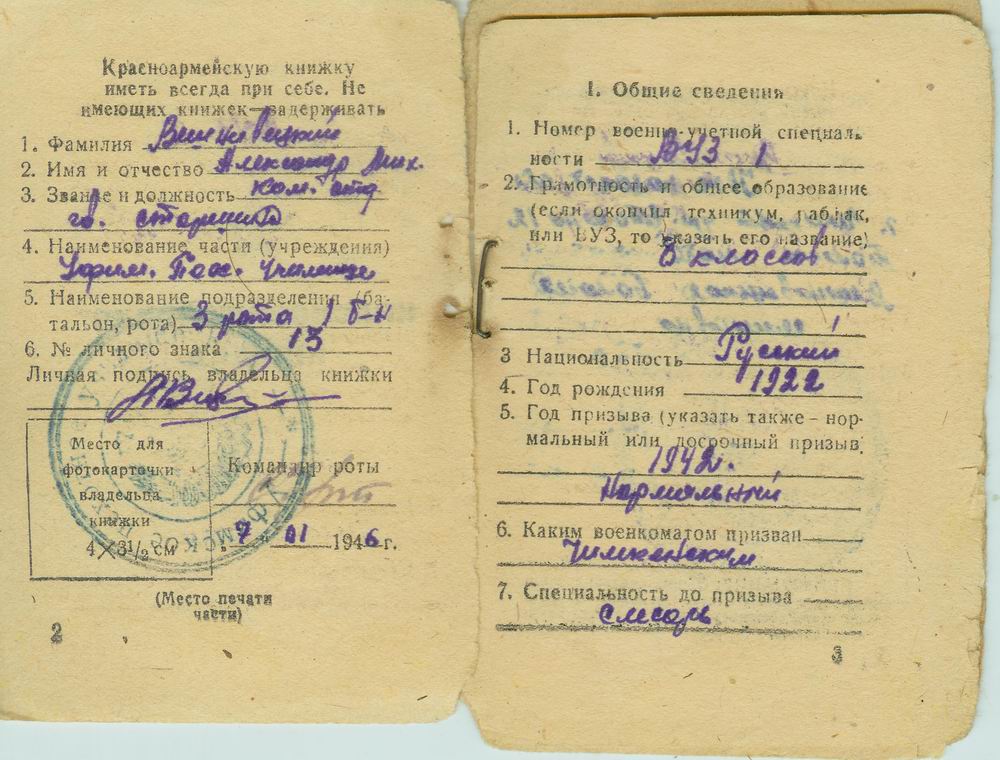 Красноармейскую книжку
иметь всегда при себе. Не
имеющих книжек—задерживать
1. Фамилия
2. Имя и отчество Александр Мих.
3. Звание и должность ком. отд
гв. старшина
4. Наименование части (учреждения)
Уфим. Пех. Училище
5. Наименование подразделения (ба-
тальон, рота) 3 рота 1 б-н
6. № личного знака 13
Личная подпись владельца книжки
Место для
фотокарточки
владельца
книжки
4×3½ см
Командир роты
„ 7 “ 01 1946 г.
(Место печати
части)
2
I. Общие сведения
1. Номер военно-учетной специаль
ности ВУЗ 1
2. Грамотность и общее образование
(если окончил техникум, рабфак,
или ВУЗ, то указать его название)
8 классов
3 Национальность Русский
4. Год рождения 1922
5. Год призыва (указать также - нор-
мальный или досрочный призыв)
1942.
Нормальный
6. Каким военкоматом призван
Чимкентским
7. Специальность до призыва
слесарь
3